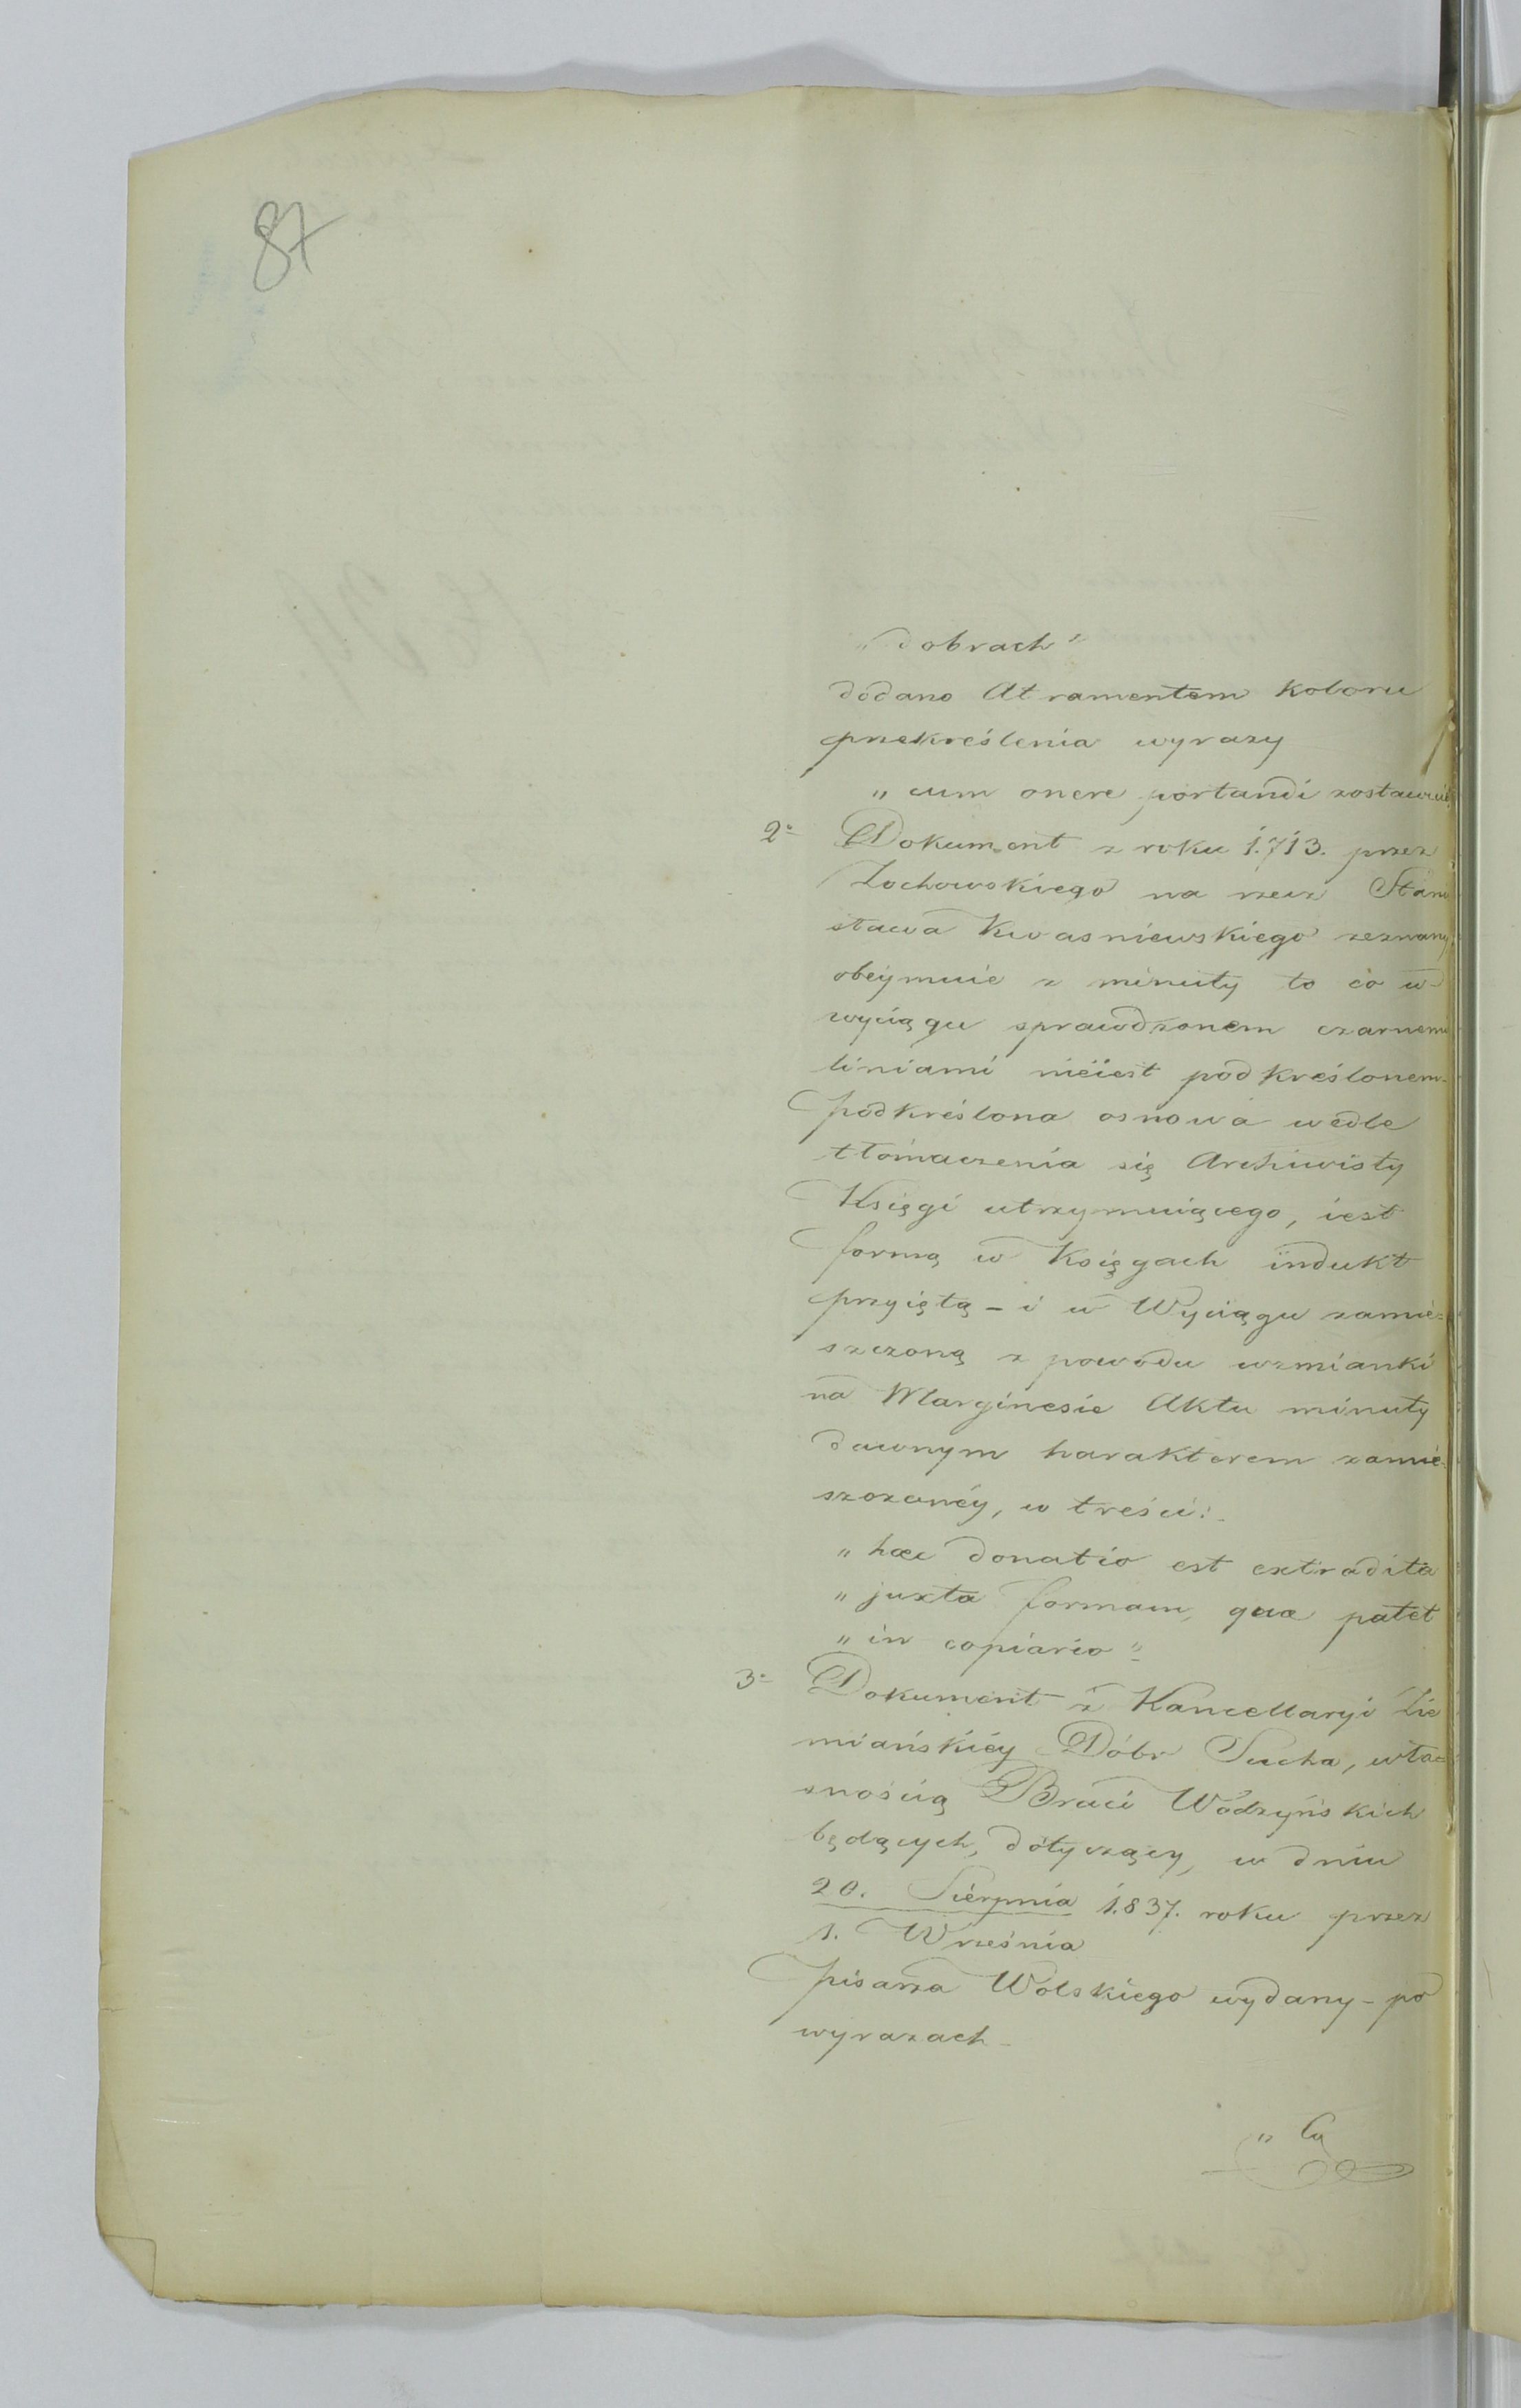 87
„dobrach”
dodano Atramentem koloru
przekreślenia wyrazy
„ cum onere portandi zostawie
2° Dokument z roku 1.713. przez
Żochowskiego na rzecz Stani
sława Kwasniewskiego zeznany
obéymuie z minuty to co w-
wyciągu sprawdzonem czarnemi
liniami nieiest podkreślonem.
podkreślona osnowa wedle
tłómaczenia się Archiwisty
Księgi utrzymuiącego, iest
formą w Księgach indukt
przyiętą - i w Wyciągu zamie=
szczoną z powodu wzmianki
na Marginesie Aktu minuty
dawnym harakterem zamie
szczonéy, w treści:
„ hæc donatio est extradita
„ juxta formam, quæ patet
„ in copiario”
3° Dokument z Kancellaryi Zie
miańskiéy Dóbr Sucha, wła=
snością Braci Wodzyńskich
będących, dotyczący, w dniu
20. Sierpnia 1.837. roku przez
1. Września
pisarza Wolskiego wydany - po
wyrazach -